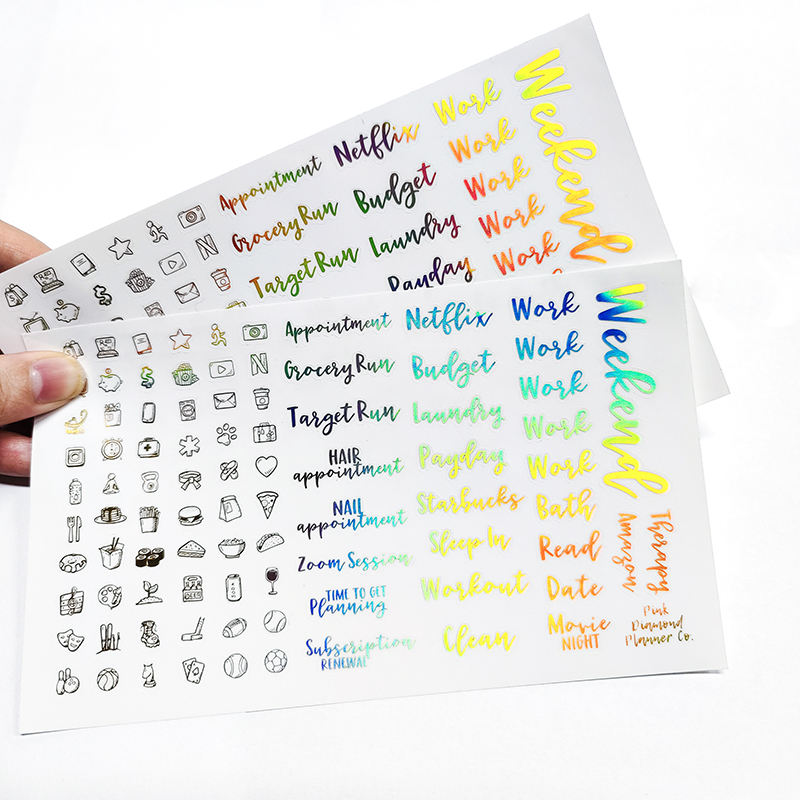 Appointment
Netflix
Work
Weekend
Grocery Run
Budget
Work
Target Run
Laundry
Work
Payday
Work
Work
N
Appointment
Netflix
Work
Weekend
Grocery Run
Budget
Work
Target Run
Laundry
Work
HAIR
appointment
Payday
Work
NAIL
appointment
Starbucks
Work
Zoom Session
Sleep In
Bath
TIME TO GET
Planning
Workout
Read
Subscription
RENEWAL
Clean
Date
Movie
NIGHT
Therapy
Amazon
Pink
Diamond
Planner Co.
N